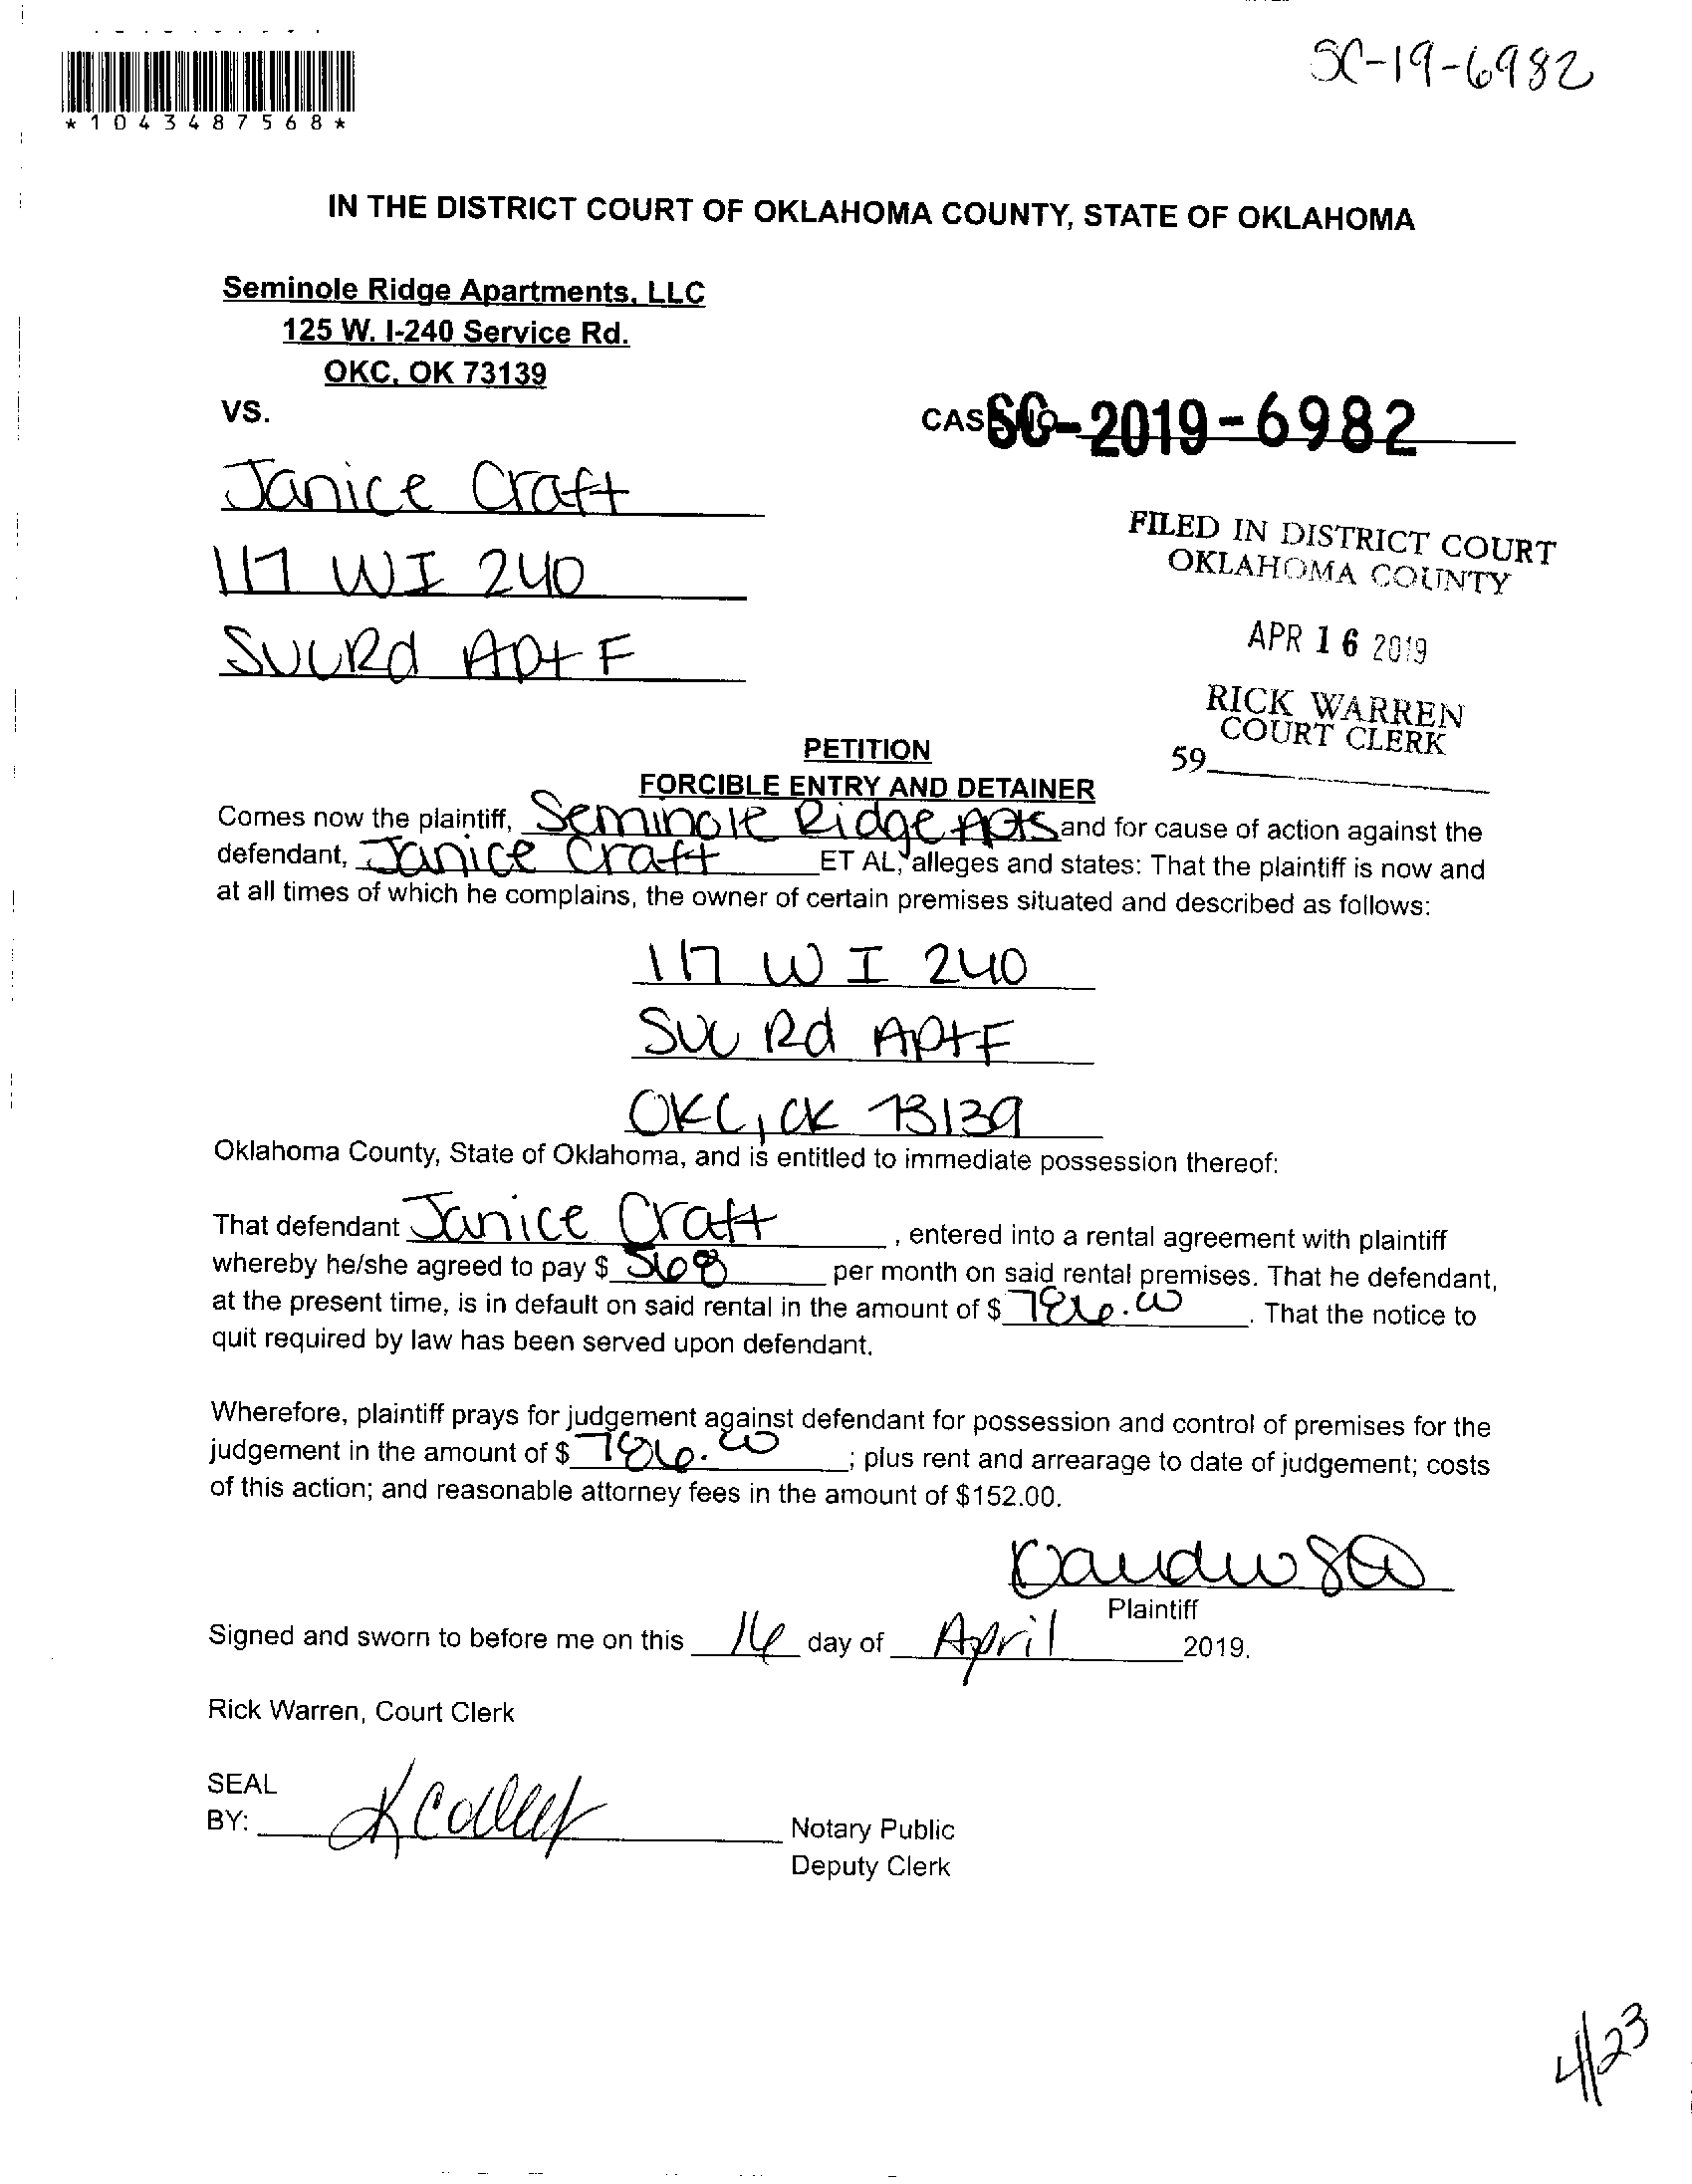 SC-19-6982
*1043487568*
IN THE DISTRICT COURT OF OKLAHOMA COUNTY, STATE OF OKLAHOMA
Seminole Ridge Apartments, LLC
125 W. I-240 Service Rd.
OKC, OK 73139
VS.
CASE NO. SC-2019-6982
Janice Craft
117 W I 240
SVC Rd Apt F
FILED IN DISTRICT COURT
OKLAHOMA COUNTY
APR 16 2019
RICK WARREN
COURT CLERK
59
PETITION
FORCIBLE ENTRY AND DETAINER
Comes now the plaintiff, Seminole Ridge Apts and for cause of action against the
defendant, Janice Craft ET AL, alleges and states: That the plaintiff is now and
at all times of which he complains, the owner of certain premises situated and described as follows:
117 W I 240
SVC Rd Apt F
OKC, OK 73139
Oklahoma County, State of Oklahoma, and is entitled to immediate possession thereof:
That defendant Janice Craft, entered into a rental agreement with plaintiff
whereby he/she agreed to pay $ 568 per month on said rental premises. That he defendant,
at the present time, is in default on said rental in the amount of $ 786.00. That the notice to
quit required by law has been served upon defendant.
Wherefore, plaintiff prays for judgement against defendant for possession and control of premises for the
judgement in the amount of $ 786.00; plus rent and arrearage to date of judgement; costs
of this action; and reasonable attorney fees in the amount of $152.00.
Plaintiff
Signed and sworn to before me on this 16 day of April 2019.
Rick Warren, Court Clerk
SEAL
BY:
Notary Public
Deputy Clerk
4/23